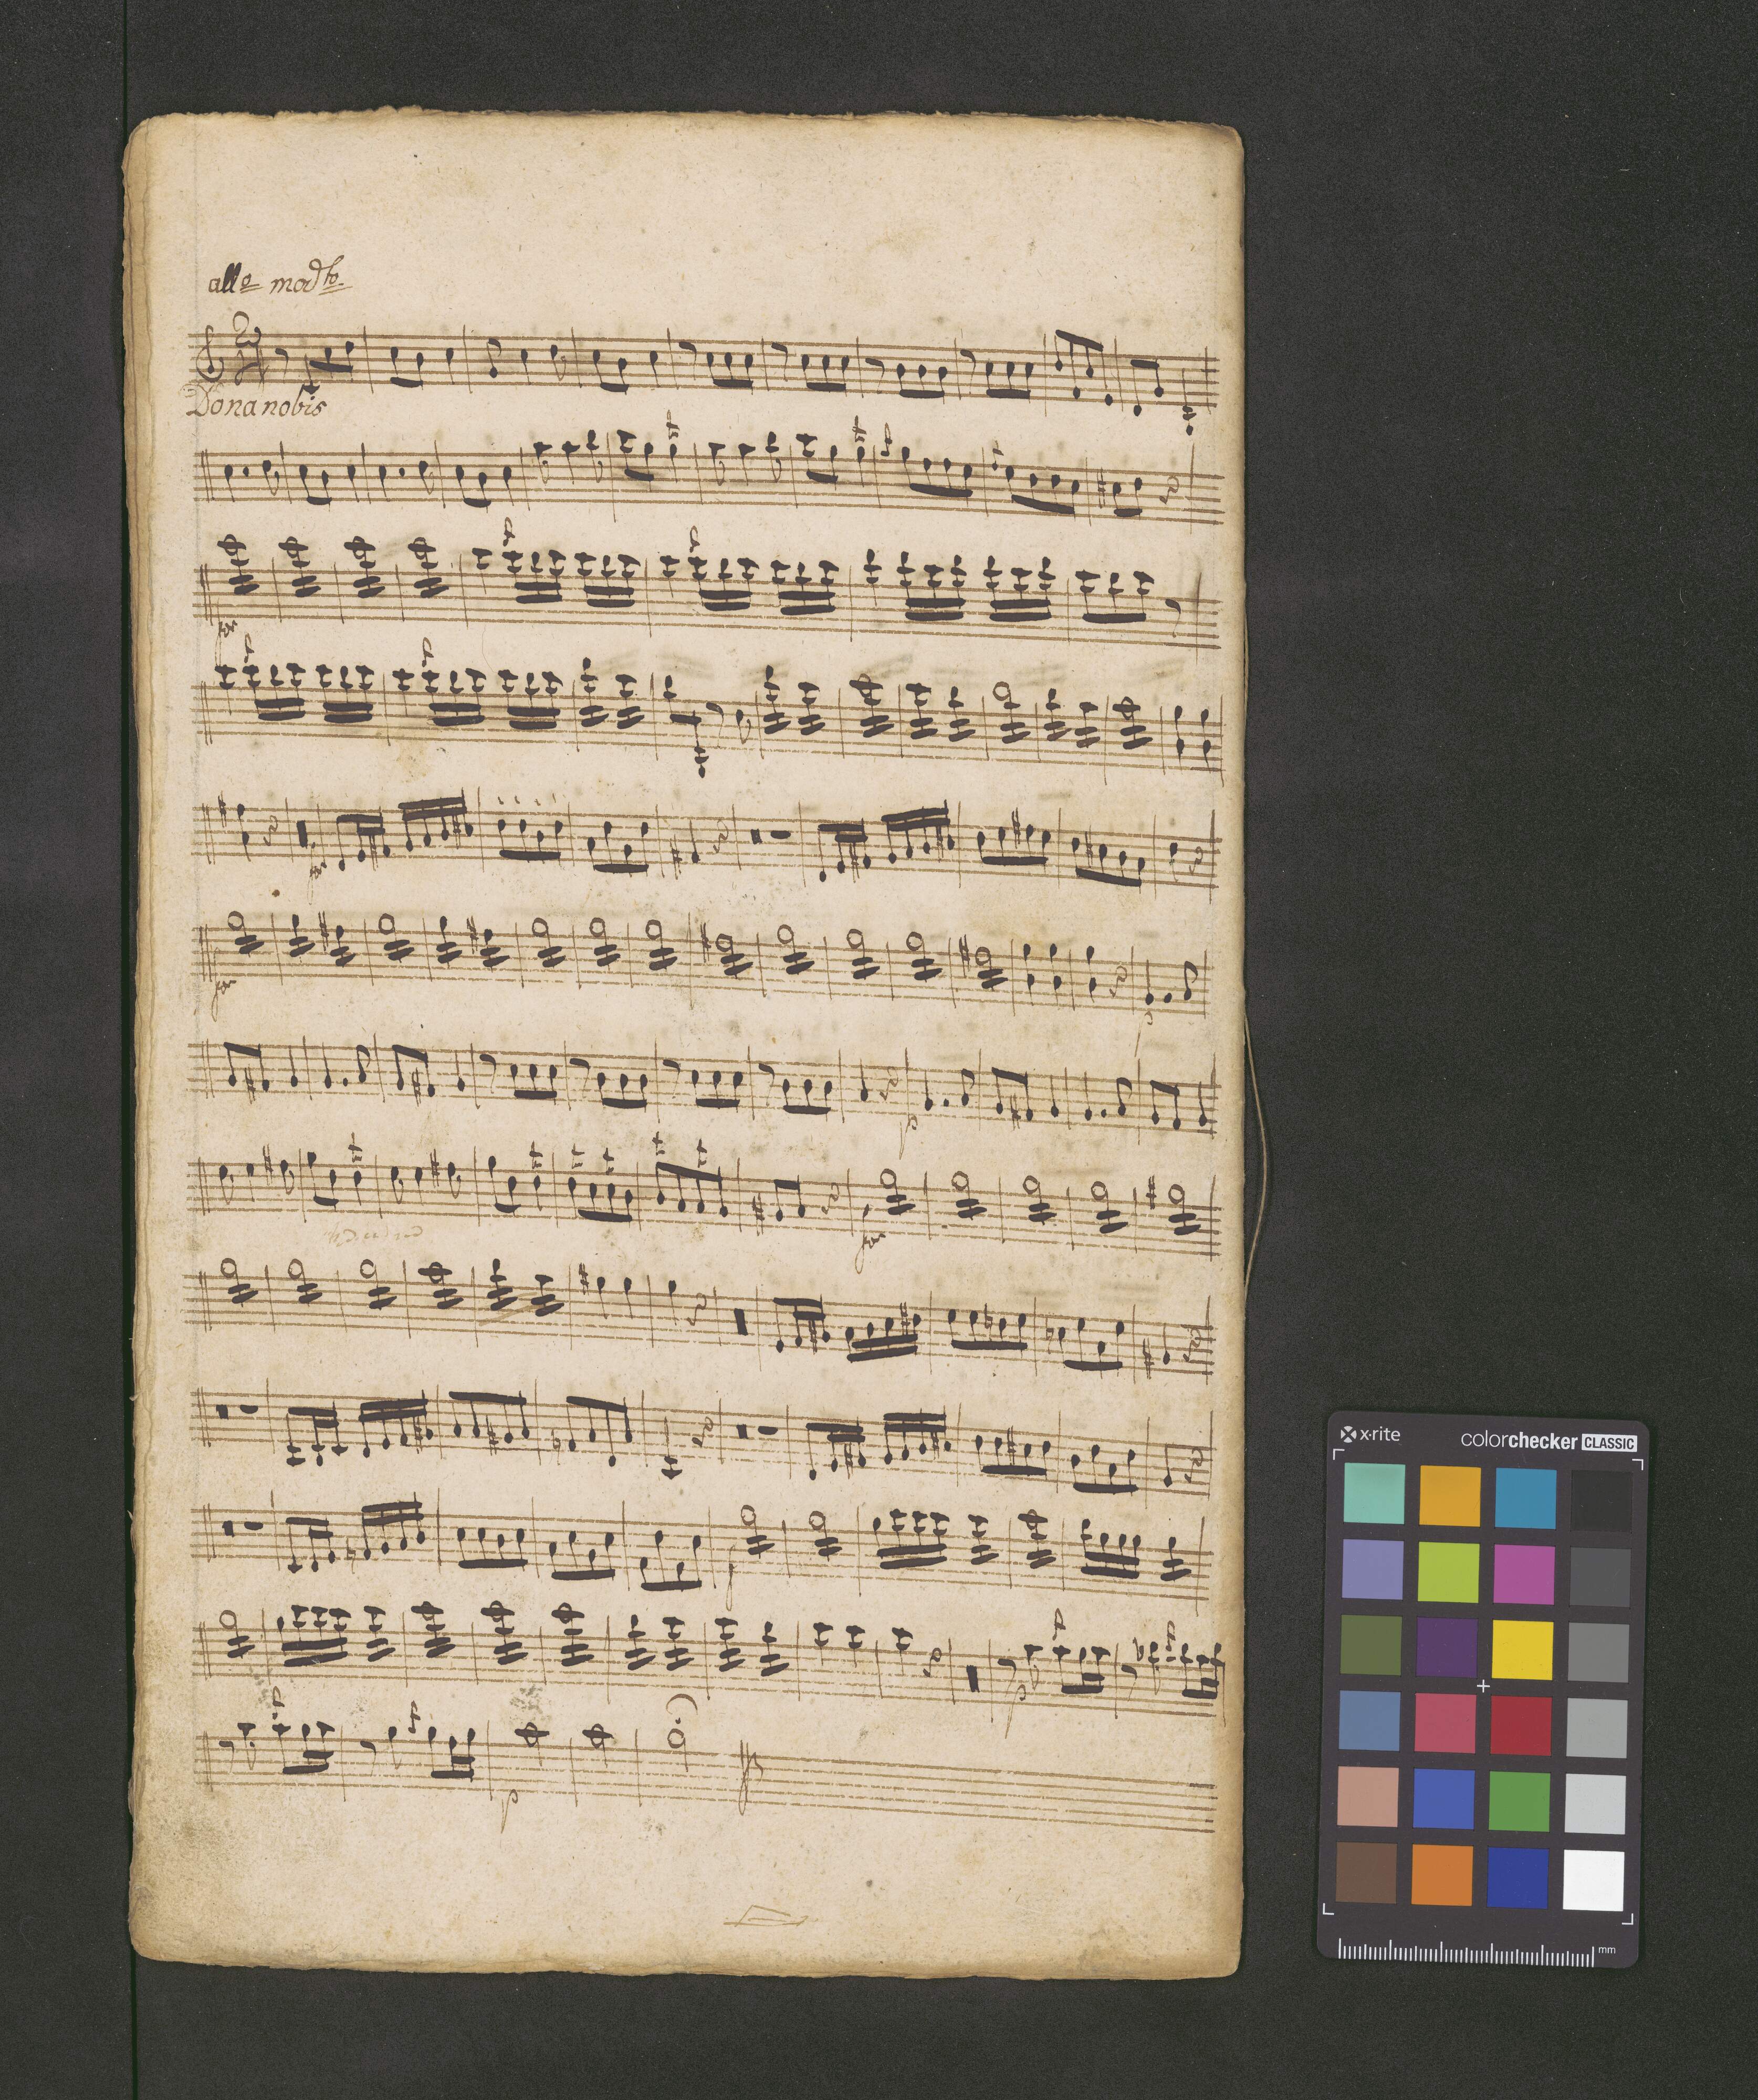 allo modto.
2/4
Dona nobis
for
for
for
p
p
for
p
p
x-rite colorchecker CLASSIC
mm